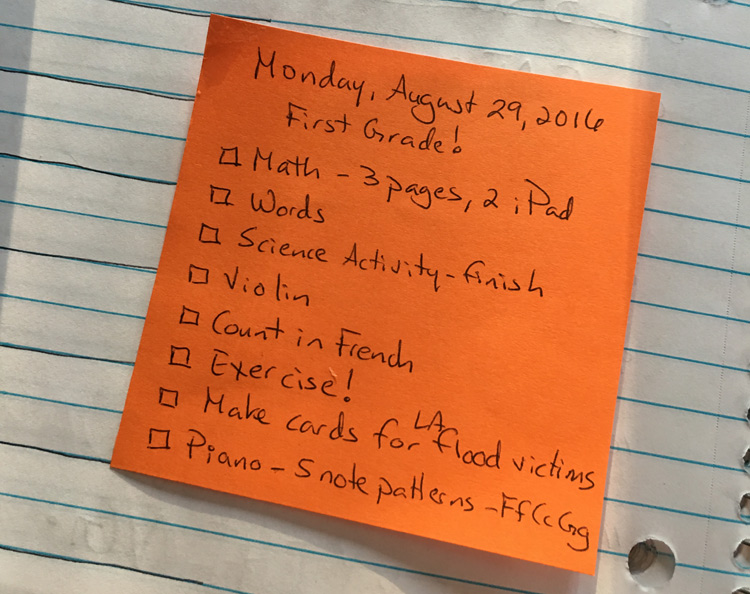 Monday, August 29, 2016
First Grade!
☐ Math - 3 pages, 2 iPad
☐ Words
☐ Science Activity - finish
☐ Violin
☐ Count in French
☐ Exercise!
☐ Make cards for LA flood victims
☐ Piano - 5 note patterns - Ff Cc Gg